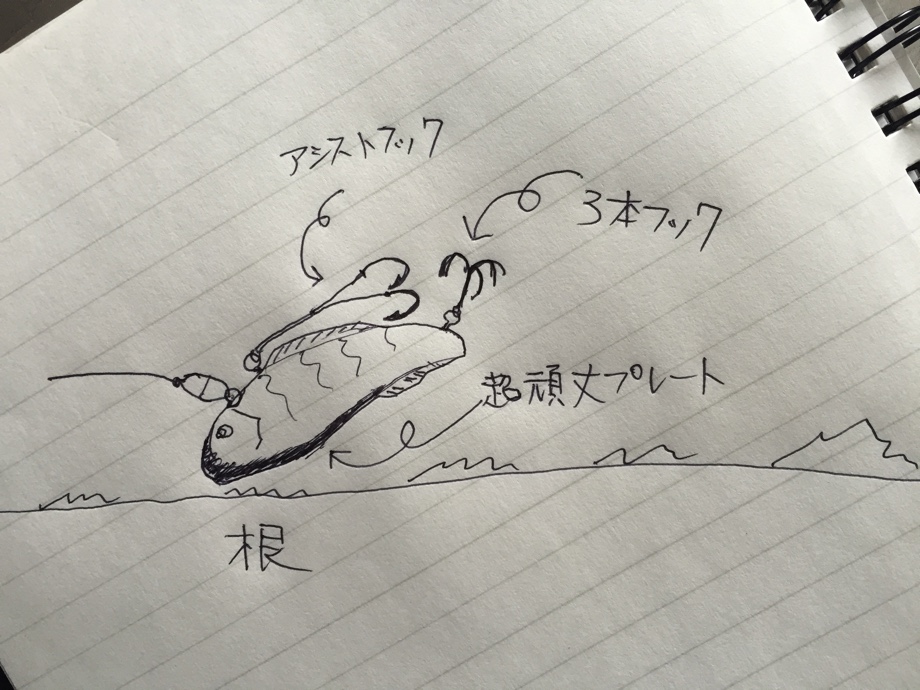 アシストフック
3本フック
超頑丈プレート
根